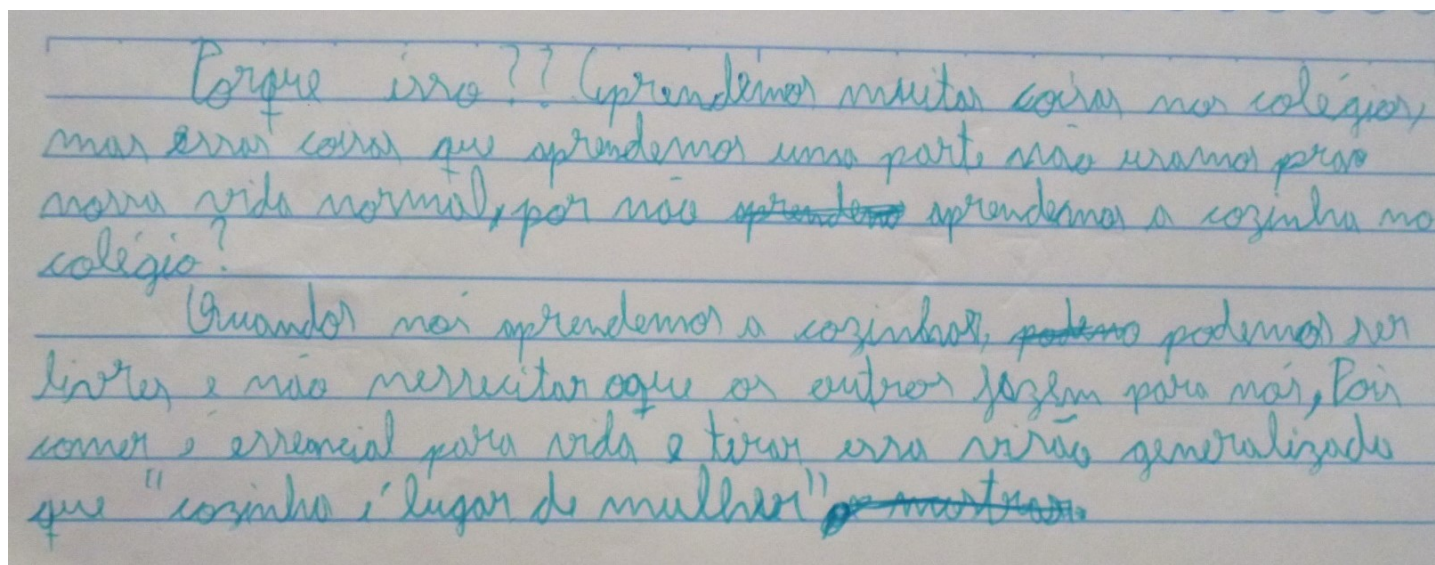 Porque isso?? Aprendemos muitas coisas nos colégios,
mas essas coisas que aprendemos uma parte não usamos prao
nossa vida normal, por não aprendemos a cozinha no
colégio?
Quandos nós aprendemos a cozinhar, podemos ser
livres e não nessecitar oque os outros fazem para nós, Pois
comer é essencial para vida e tirar essa visão generalizada
que "cozinha é lugar de mulher"